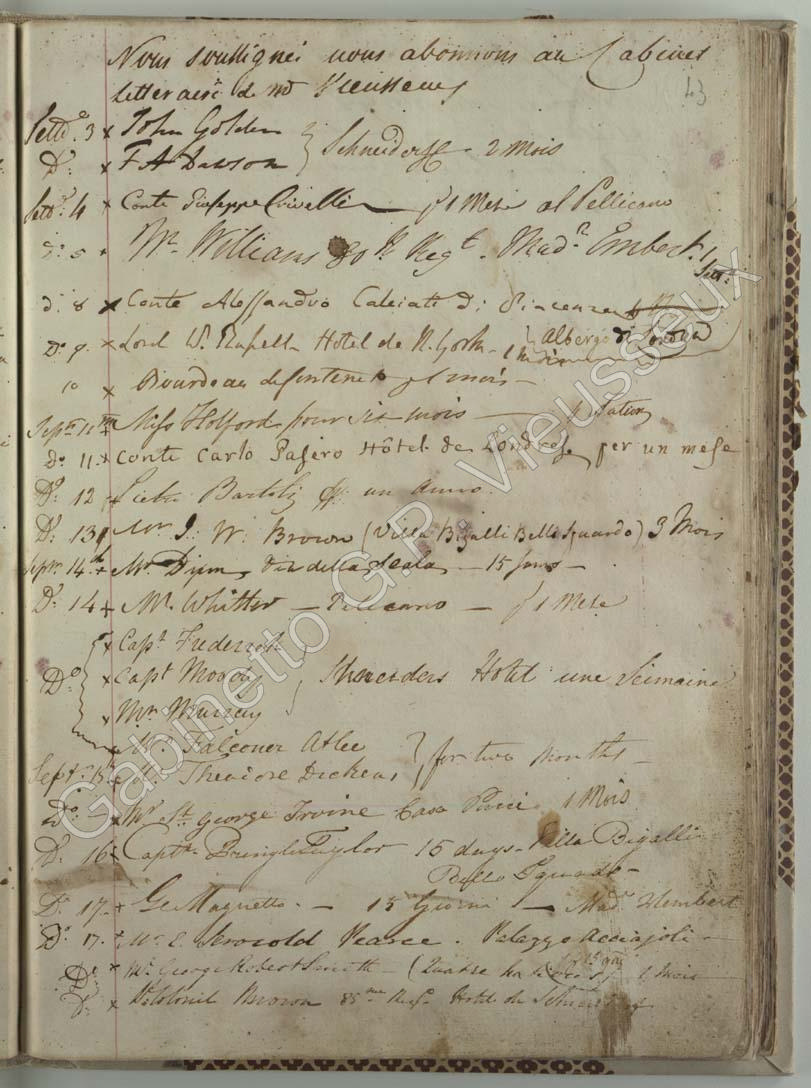 Nous soussignés nous abonnons au Cabinet
litteraire de Mr Vieusseux
43
Sette. 3 x John Golden
Do. x F A Dawson } Schneiderffe 2 Mois
Sette. 4 x Conte Giuseppe Crivelli p 1 Mese al Pellicano
do. 5 x Mr. Williams 80th Regt. Madn Embert. 1
Sett.
d. 8 x Conte Alessandro Calciati di Piacenza
Do. 9. x Lord W. Russell Hotel de N. York - Albergo di Londra
10 x Bourdeau de fontenet 1 mois
Septr 11th Miss Holford pour six mois
do. 11. x Conte Carlo Pasero Hôtel de Londres per un mese
Do. 12 Pietro Bartoli un anno.
Do. 13 Mr J. W. Brown (Villa Bigalli Bello Sguardo) 3 Mois
Sepr. 14th Mr Dunn, Via della Scala - 15
Do. 14 Mr. Whitter - Pellicano - p 1 Mese
x Capt. Frederick
Do. x Capt Moody
x Mr Murray } Schneiders Hotel une Semaine
Mr. Falconer Atlee
Septr. 15 Mr. Theodore Dickens } for two months -
Do - Mr St. George Irvine Casa Pucci 1 Mois
Do. 16 Captn. Pringle Taylor 15 days - Villa Bigalli
Bello Sguardo -
Do. 17. G. Magnetto. - 15 Giorni - Mad. Hembert
Do. 17. Mr E. Serocold Pearce. Palazzo Acciajoli -
Do x Mr. George Robert Smith - 1 Mois
Do. x Colonel 85me Regt Hotel de
Gabinetto G.P. Vieusseux